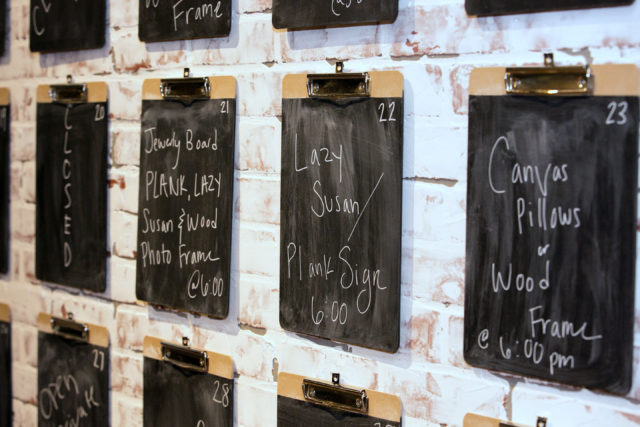 Frame
20
CLOSED
21
Jewelry Board
PLANK, LAZY
Susan & Wood
Photo Frame
@6:00
22
Lazy
Susan /
Plank Sign
6:00
23
Canvas
Pillows
or
Wood
Frame
@ 6:00pm
27
Open
28